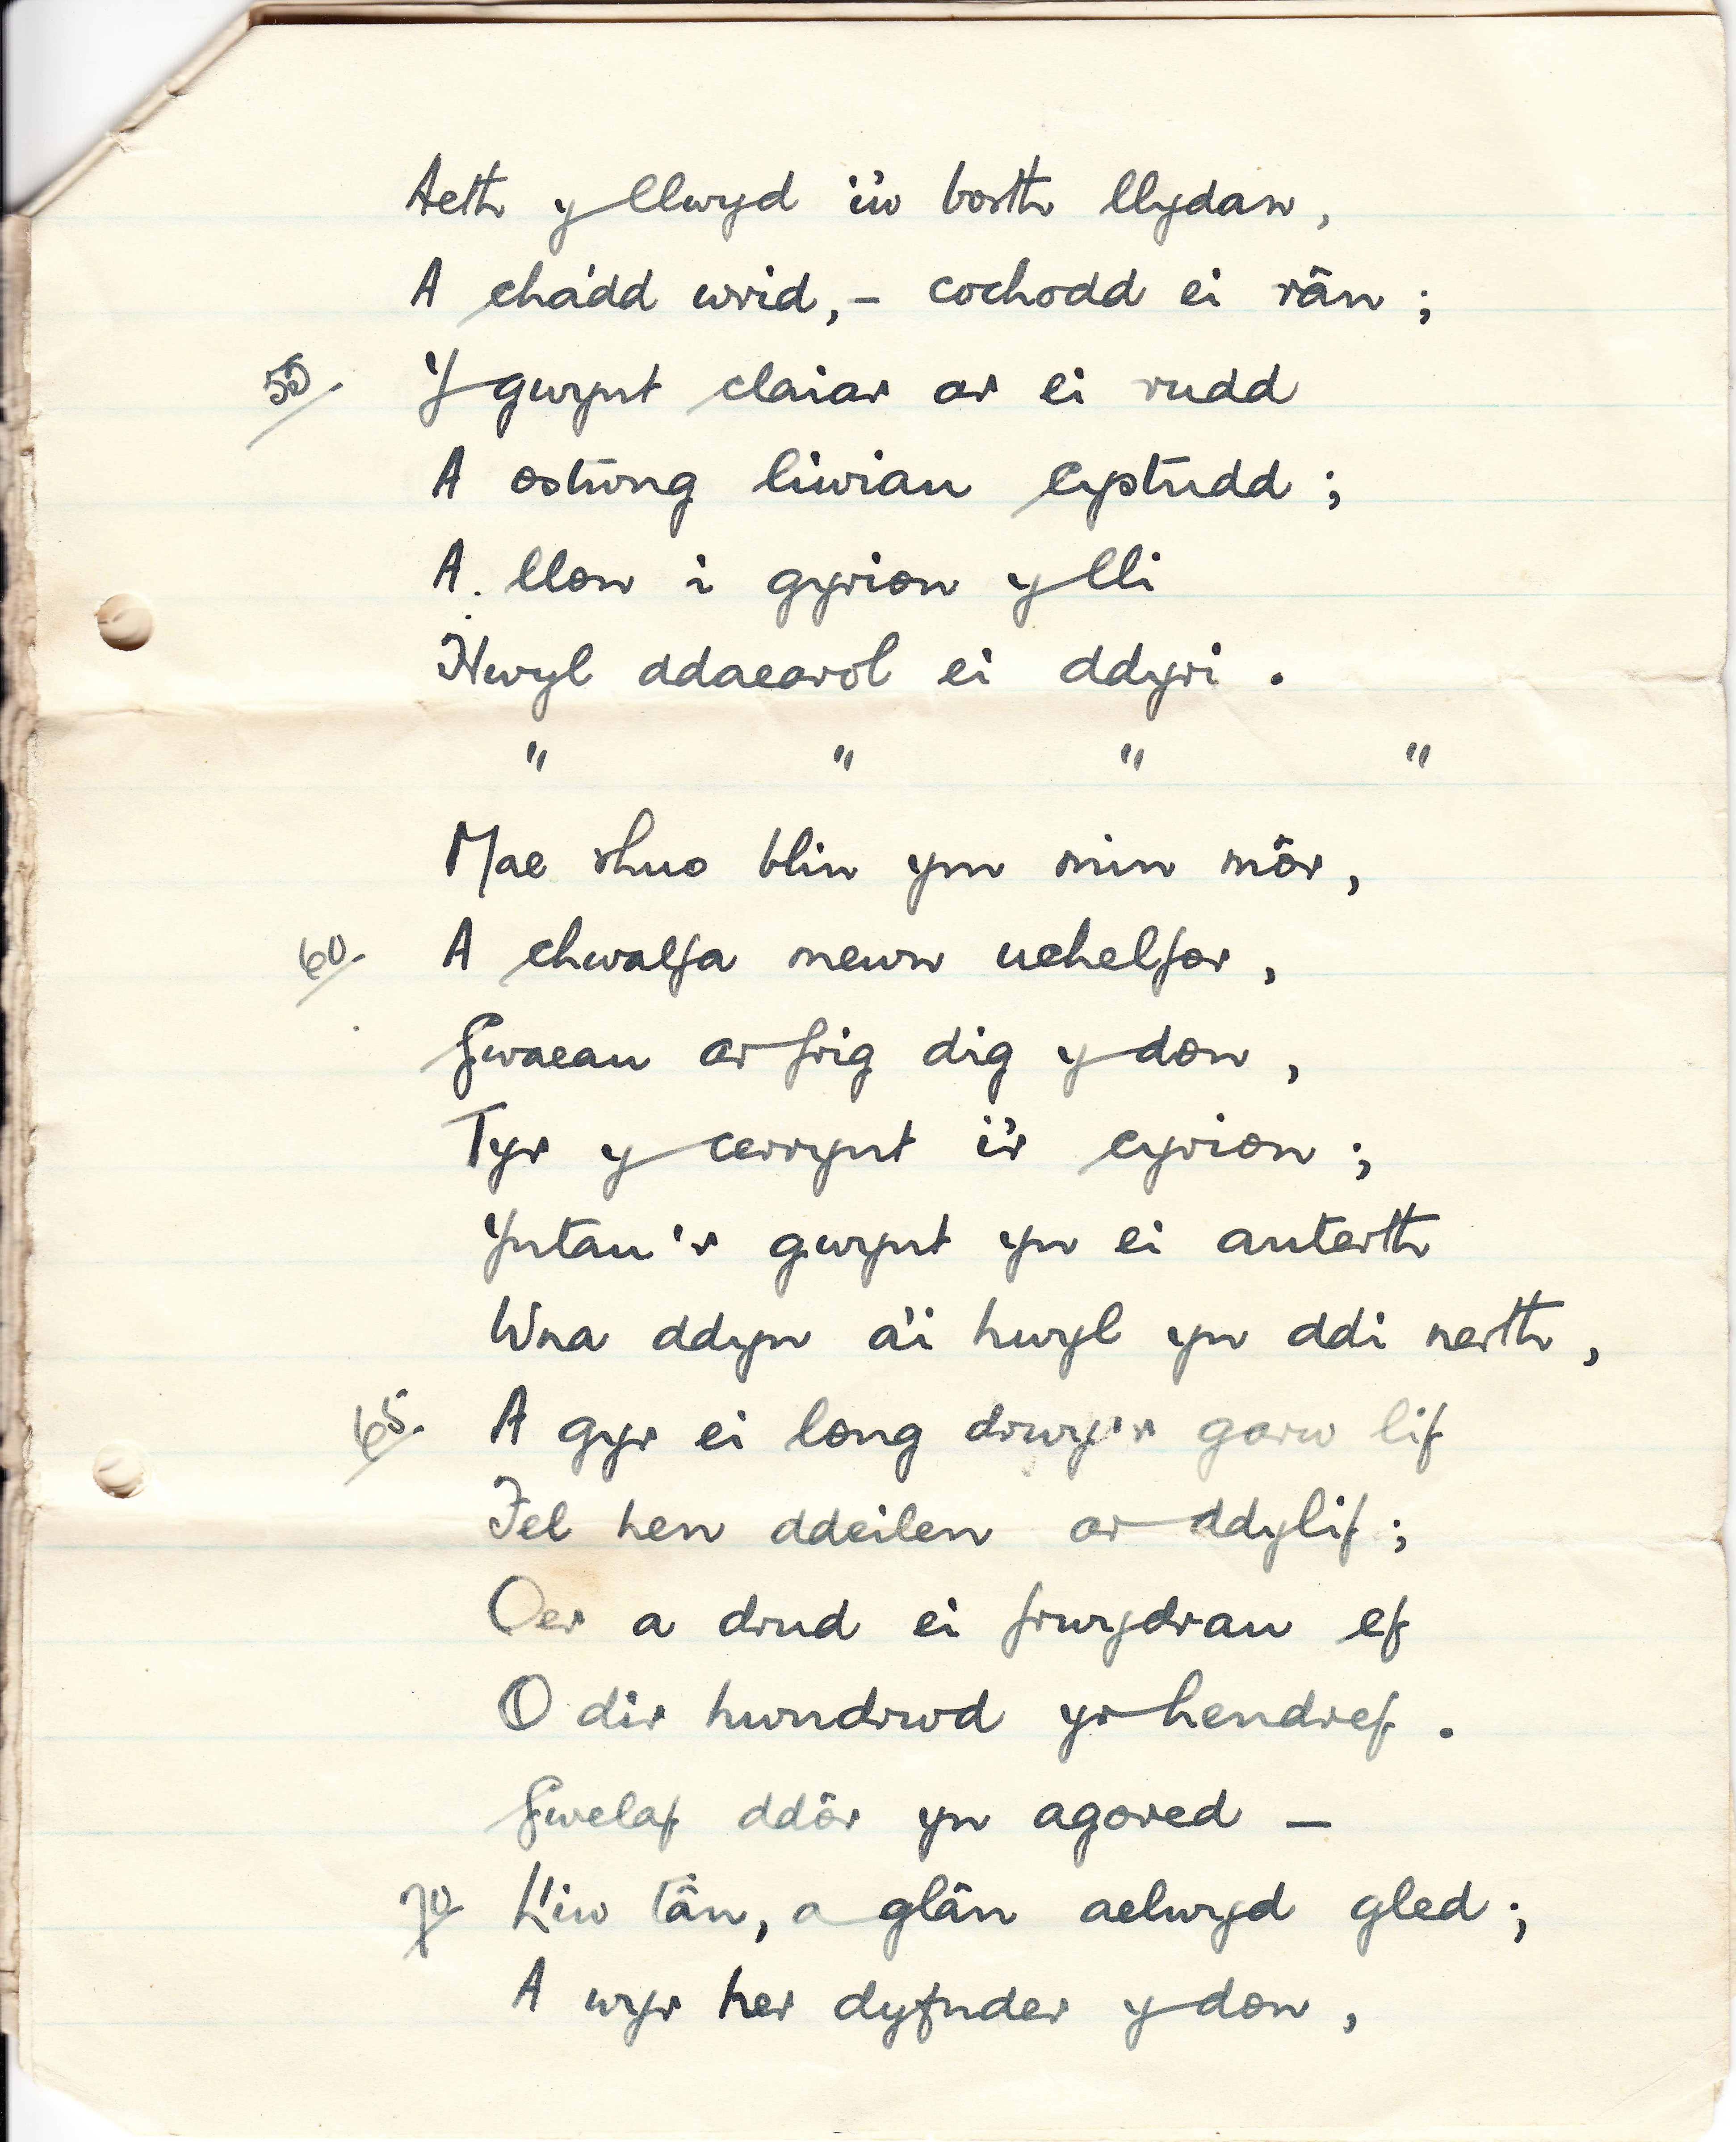 Aeth y llwyd i'w borth llydan,
A chadd wrid, - cochodd ei rân ;
50. Y gwynt claiar ar ei rudd
A ostwng liwiau cystudd ;
A llon i gyrion y lli
Hwyl ddaearol ei ddyri .
" " " "
Mae rhuo blin ym min môr,
60. A chwalfa mewn uchelfor,
Gwaeau ar frig dig y don,
Tyr y cerrynt i'r cyrion ;
Yntau'r gwynt yn ei anterth
Wna ddyn a'i hwyl yn ddi nerth,
65. A gyr ei long drwy'r garw lif
Fel hen ddeilen ar ddylif ;
Oer a drud ei frwydrau ef
O dir hwndrwd yr hendref .
Gwelaf ddôr yn agored —
70 Lliw tân, a glân aelwyd gled ;
A wyr her dyfnder y don,